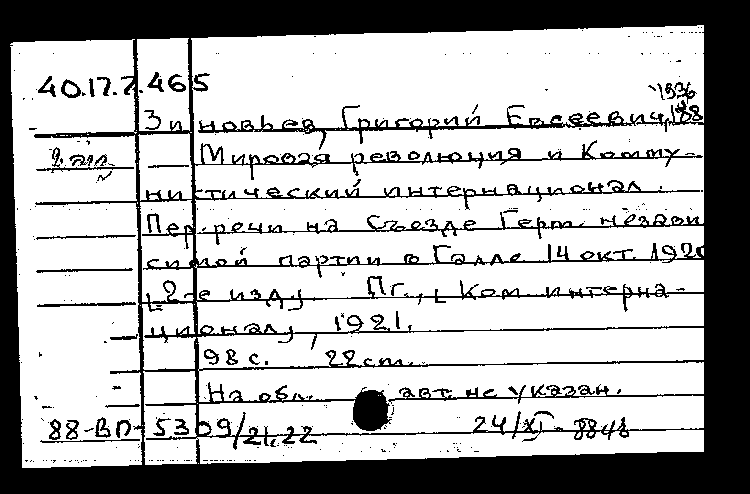 40.17.7.465
1936
Зиновьев, Григорий Евсеевич, 188
2 экз.
Мировая революция и Комму-
нистический интернационал.
Пер. речи на Съезде Герм. незави
симой партии в Галле 14 окт. 1920
[2-е изд.] Пг., [Ком. интерна-
ционал], 1921.
98 с. 22 cm.
На обл. авт. не указан.
88-ВП-5309/21,22 24/XI-